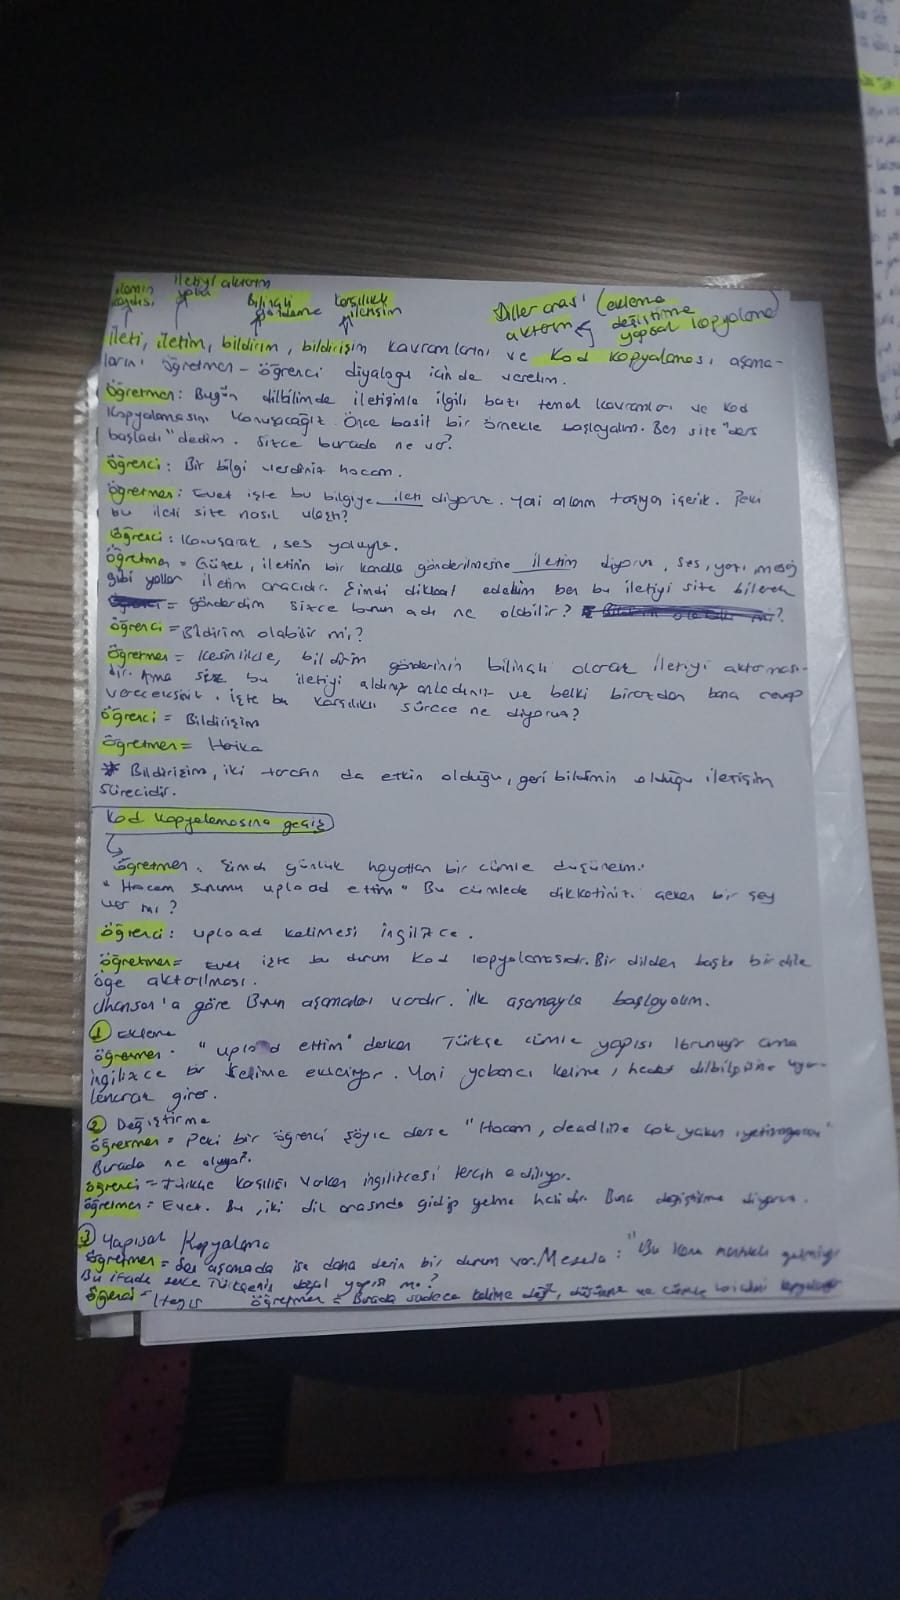 iletiyi aktarım
anlamın kendisi yolu Bilinçli gönderme karşılıklı iletişim Diller arası aktarım (ekleme değiştirme yapısal kopyalama)
İleti, iletim, bildirim, bildirişim kavramlarını ve Kod kopyalaması aşama-
larını öğretmen - öğrenci diyalogu içinde verelim.
Öğretmen: Bugün dilbilimde iletişimle ilgili bazı temel kavramları ve kod
kopyalamasını konuşacağız. Önce basit bir örnekle başlayalım. Ben size "ders
başladı" dedim. Sizce burada ne var?
Öğrenci: Bir bilgi verdiniz hocam.
Öğretmen: Evet işte bu bilgiye ileti diyoruz. Yani anlam taşıyan içerik. Peki
bu ileti size nasıl ulaştı?
Öğrenci: Konuşarak, ses yoluyla.
Öğretmen = Güzel, iletinin bir kanalla gönderilmesine iletim diyoruz, ses, yazı, mesaj
gibi yollar iletim aracıdır. Şimdi dikkat edelim ben bu iletiyi size bilerek
= gönderdim sizce bunun adı ne olabilir?
Öğrenci = Bildirim olabilir mi?
Öğretmen = Kesinlikle, bildirim gönderinin bilinçli olarak iletiyi aktarması-
dır. Ama siz bu iletiyi aldınız anladınız ve belki birazdan bana cevap
vereceksiniz. İşte bu karşılıklı sürece ne diyoruz?
Öğrenci = Bildirişim
Öğretmen = Harika
* Bildirişim, iki tarafın da etkin olduğu, geri bildirimin olduğu iletişim
sürecidir.
Kod Kopyalamasına geçiş
Öğretmen. Şimdi günlük hayattan bir cümle düşünelim:
"Hocam sunumu upload ettim" Bu cümlede dikkatinizi çeken bir şey
var mı?
Öğrenci: upload kelimesi ingilizce.
Öğretmen = Evet işte bu durum kod kopyalamasıdır. Bir dilden başka bir dile
öge aktarılması.
Jhanson'a göre bunun aşamaları vardır. İlk aşamayla başlayalım.
1 Ekleme
Öğretmen. "upload ettim" derken Türkçe cümle yapısı korunuyor ama
ingilizce bir kelime ekleniyor. Yani yabancı kelime, hedef dilbilgisine uyar-
lanarak girer.
2 Değiştirme
Öğretmen = Peki bir öğrenci şöyle derse "Hocam, deadline çok yakın yetişmiyorum"
Burada ne oluyor?
Öğrenci = Türkçe karşılığı varken ingilizcesi tercih ediliyor.
Öğretmen = Evet. Bu, iki dil arasında gidip gelme halidir. Buna değiştirme diyoruz.
3 Yapısal Kopyalama
Öğretmen = Son aşamada ise daha derin bir durum var. Mesela: "Bu bana mantıklı gelmiyor"
Bu ifade sizce Türkçenin doğal yapısı mı?
Öğrenci = Hayır Öğretmen = Burada sadece kelime değil, düşünme ve cümle biçimi